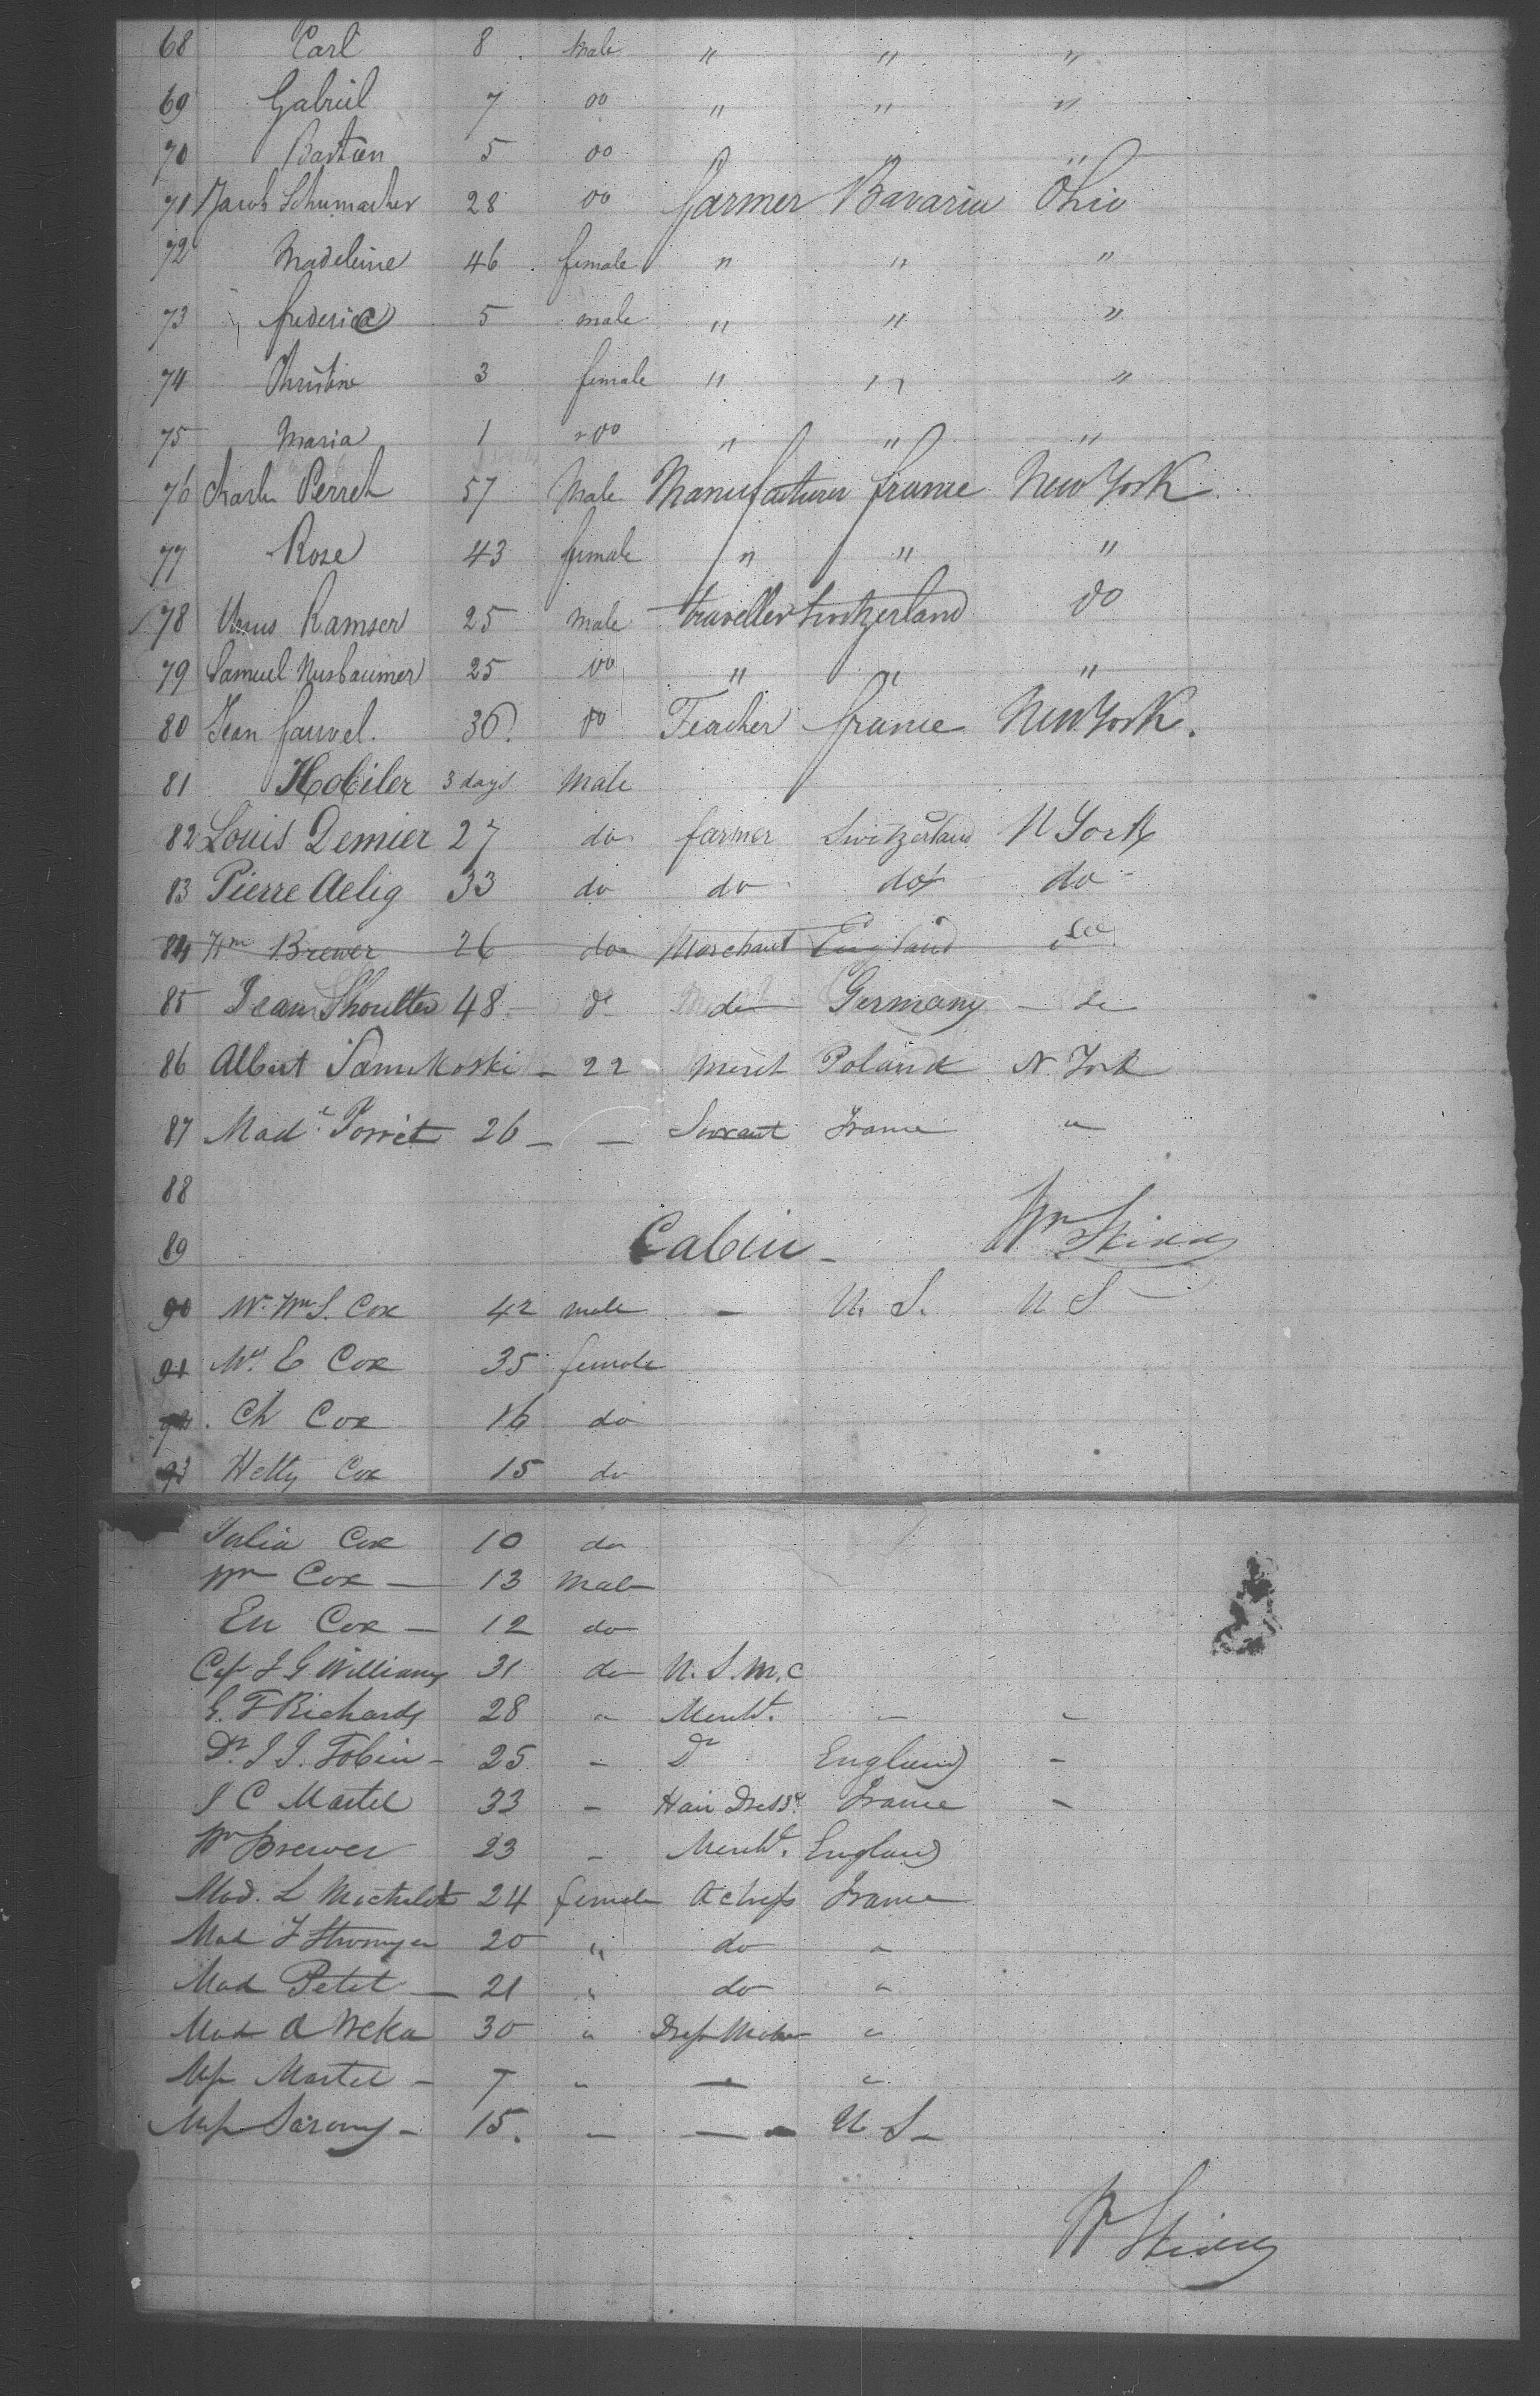 68 Carl 8 Male " " "
69 Gabriel 7 do " " "
70 Bastien 5 do " " "
71 Jacob Schumacher 28 do farmer Bavaria Ohio
72 Madeleine 46 female " " "
73 frederic 5 male " " "
74 Christine 3 female " " "
75 Maria 1 do " " "
76 Charles 57 Male Manufacturer france New York
77 Rose 43 female " " "
78 Ramser 25 male traveller Switzerland do
79 Samuel Nusbaumer 25 do " " "
80 Jean fauvel. 36 do Teacher france New York.
81 3 days Male
82 Louis Demier 27 do farmer Switzerland N York
83 Pierre Aelig 33 do do do do
84 Wm Brewer 26 do Merchant England do
85 Jean 48 do do Germany do
86 Albert 22 Mercht Poland N York
87 Made Porret 26 — — Servant France "
88
89 Cabin Wm Skiddy
90 Mr Wm S. Cox 42 male — U. S. U S
91 Mrs E Cox 35 female
92 Ch Cox 16 do
93 Hetty Cox 15 do
Julia Cox 10 do
Wm Cox — 13 Male
En Cox — 12 do
Cap J G Williams 31 do U. S. M. C
G. F Richards 28 " Mercht. " "
Dr. J J. Tobin - 25 - Dr England -
J C Martel 33 - Hair Dressr France -
Wm Brewer 23 - Mercht. England
Mad. L Michelet 24 female Actress France
Mad 20 " do "
Mad Petit — 21 " do "
Mad A 30 " Dress Maker "
Miss Martel - 7 " — "
Miss Sarony - 15. - — U S -
W Skiddy